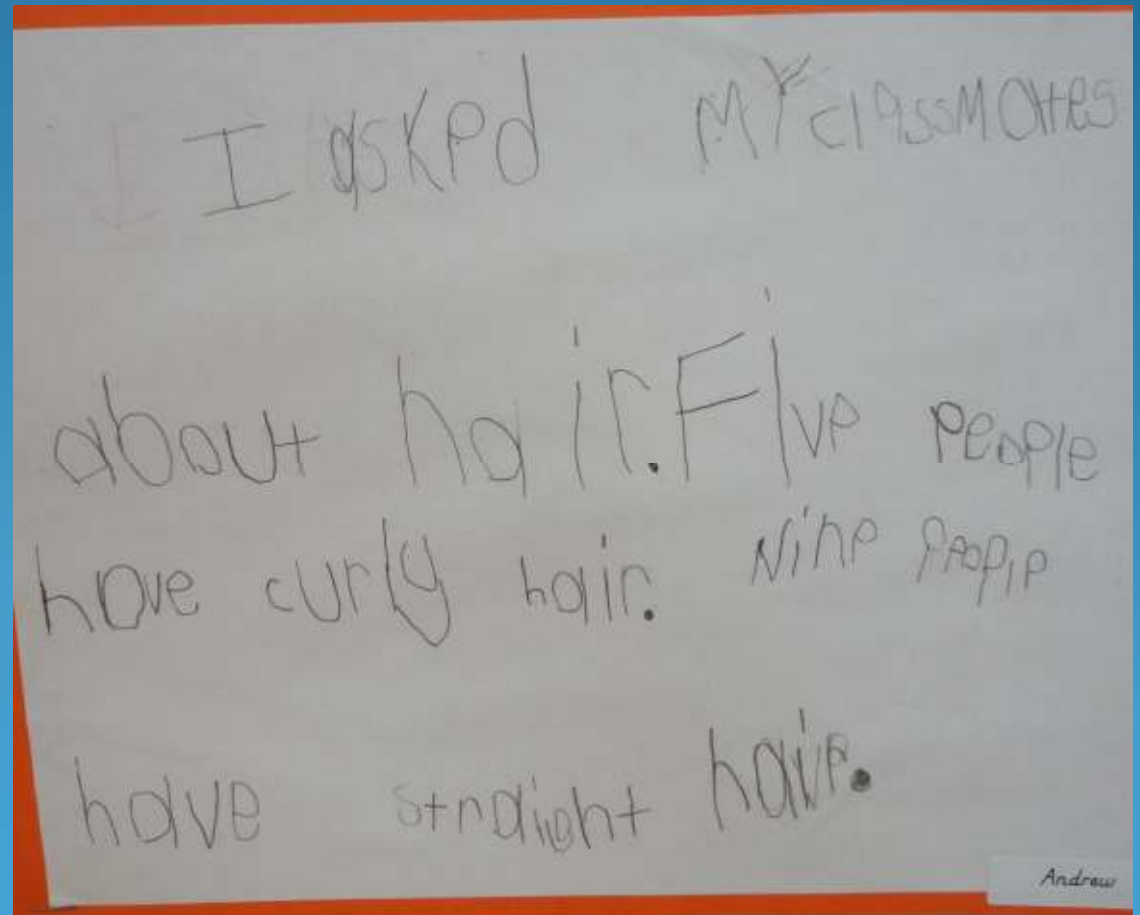 I asked MY classmates
about hair. Five people
have curly hair. Nine people
have straight hair.
Andrew